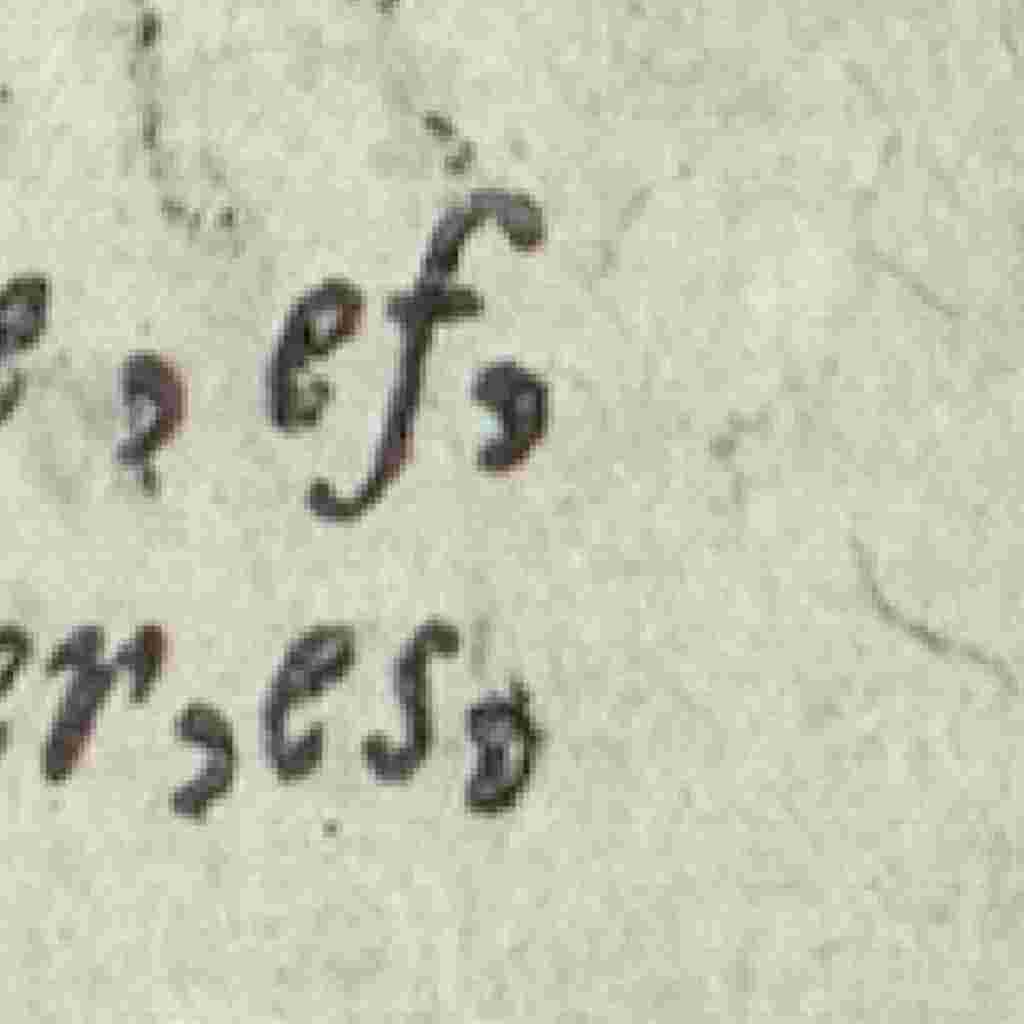 e, ef,
er, es,